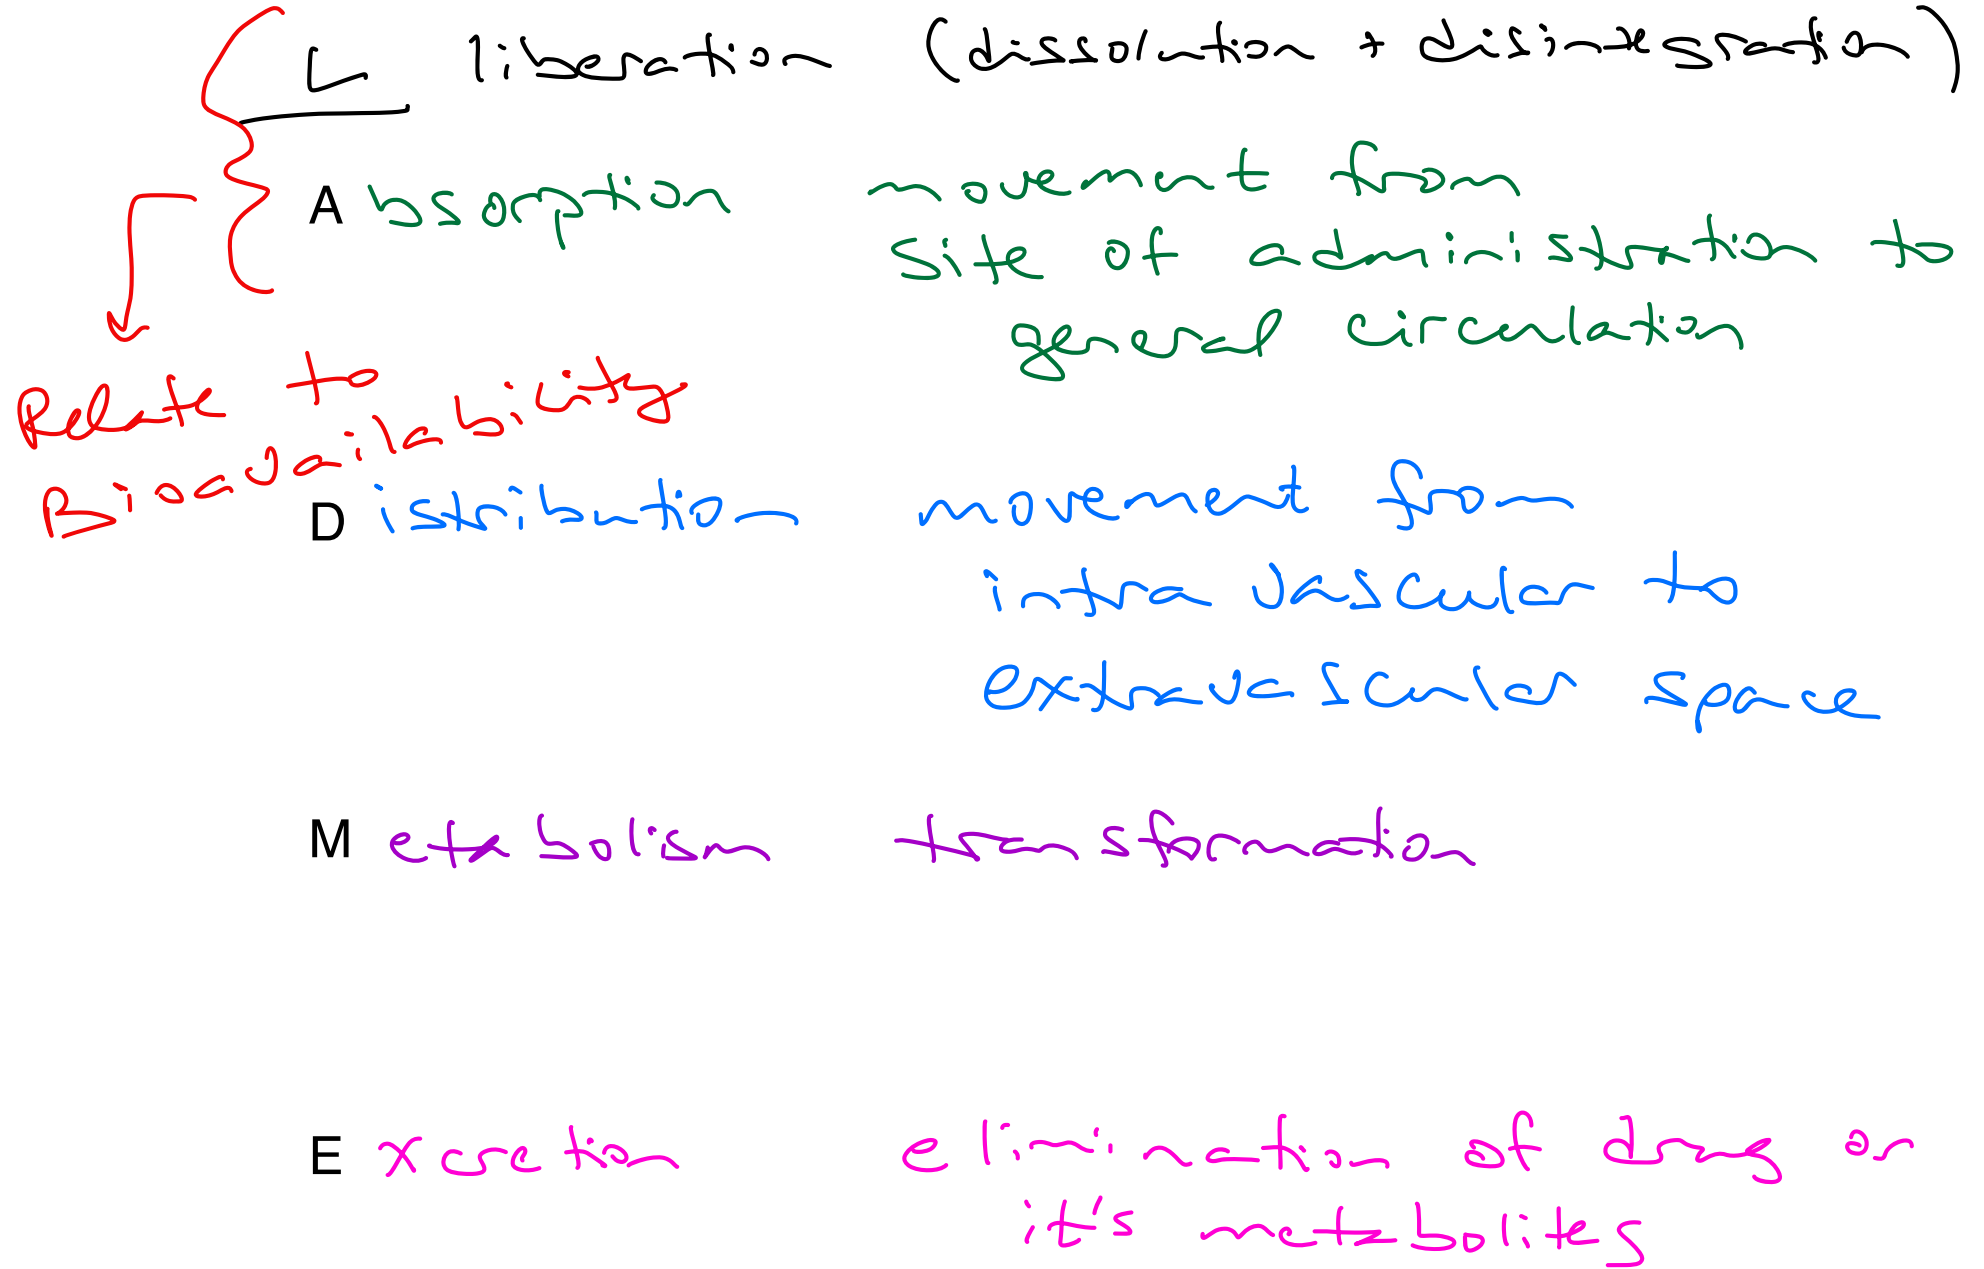 L liberation (dissolution + disintegration)
Absorption movement from
site of administration to
general circulation
Relate to
Bioavailability
Distribution movement from
intra vascular to
extravascular space
Metabolism transformation
Excretion elimination of drug or
it's metabolites